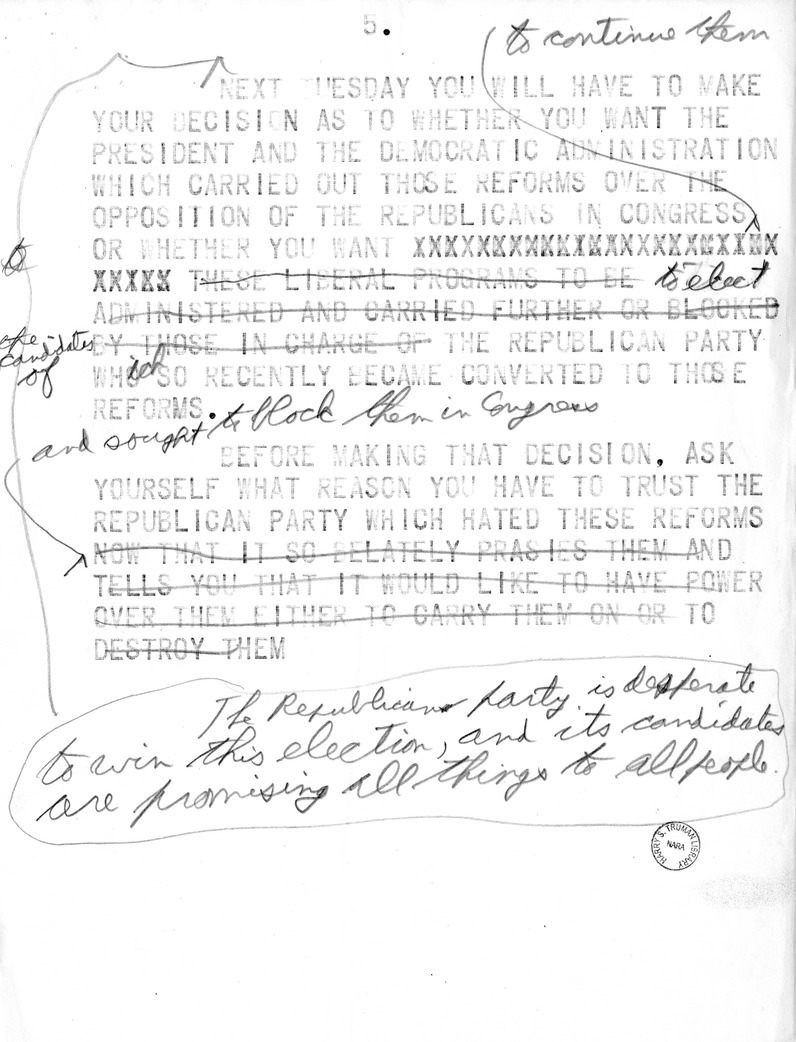 5.
to continue them
NEXT TUESDAY YOU WILL HAVE TO MAKE
YOUR DECISION AS TO WHETHER YOU WANT THE
PRESIDENT AND THE DEMOCRATIC ADMINISTRATION
WHICH CARRIED OUT THOSE REFORMS OVER THE
OPPOSITION OF THE REPUBLICANS IN CONGRESS
to
OR WHETHER YOU WANT XXXXXXXXXXXXXXXXXXXXXXXXXX
XXXXX THESE LIBERAL PROGRAMS TO BE to elect
ADMINISTERED AND CARRIED FURTHER OR BLOCKED
the candidates of
BY THOSE IN CHARGE OF THE REPUBLICAN PARTY
WHich SO RECENTLY BECAME CONVERTED TO THOSE
REFORMS.
and sought to block them in Congress
BEFORE MAKING THAT DECISION, ASK
YOURSELF WHAT REASON YOU HAVE TO TRUST THE
REPUBLICAN PARTY WHICH HATED THESE REFORMS
NOW THAT IT SO BELATELY PRASIES THEM AND
TELLS YOU THAT IT WOULD LIKE TO HAVE POWER
OVER THEM EITHER TO CARRY THEM ON OR TO
DESTROY THEM
The Republican party is desperate
to win this election, and its candidates
are promising all things to all people.
HARRY S. TRUMAN LIBRARY
NARA